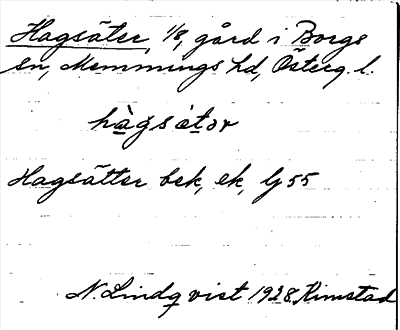 Hagsäter, 1/8, gård i Borgs
sn, Memmings hd, Österg. l.
hàgsǝ̀tǝr
Hagsätter bek, ek, Gj 55
N. Lindqvist 1928. Kimstad